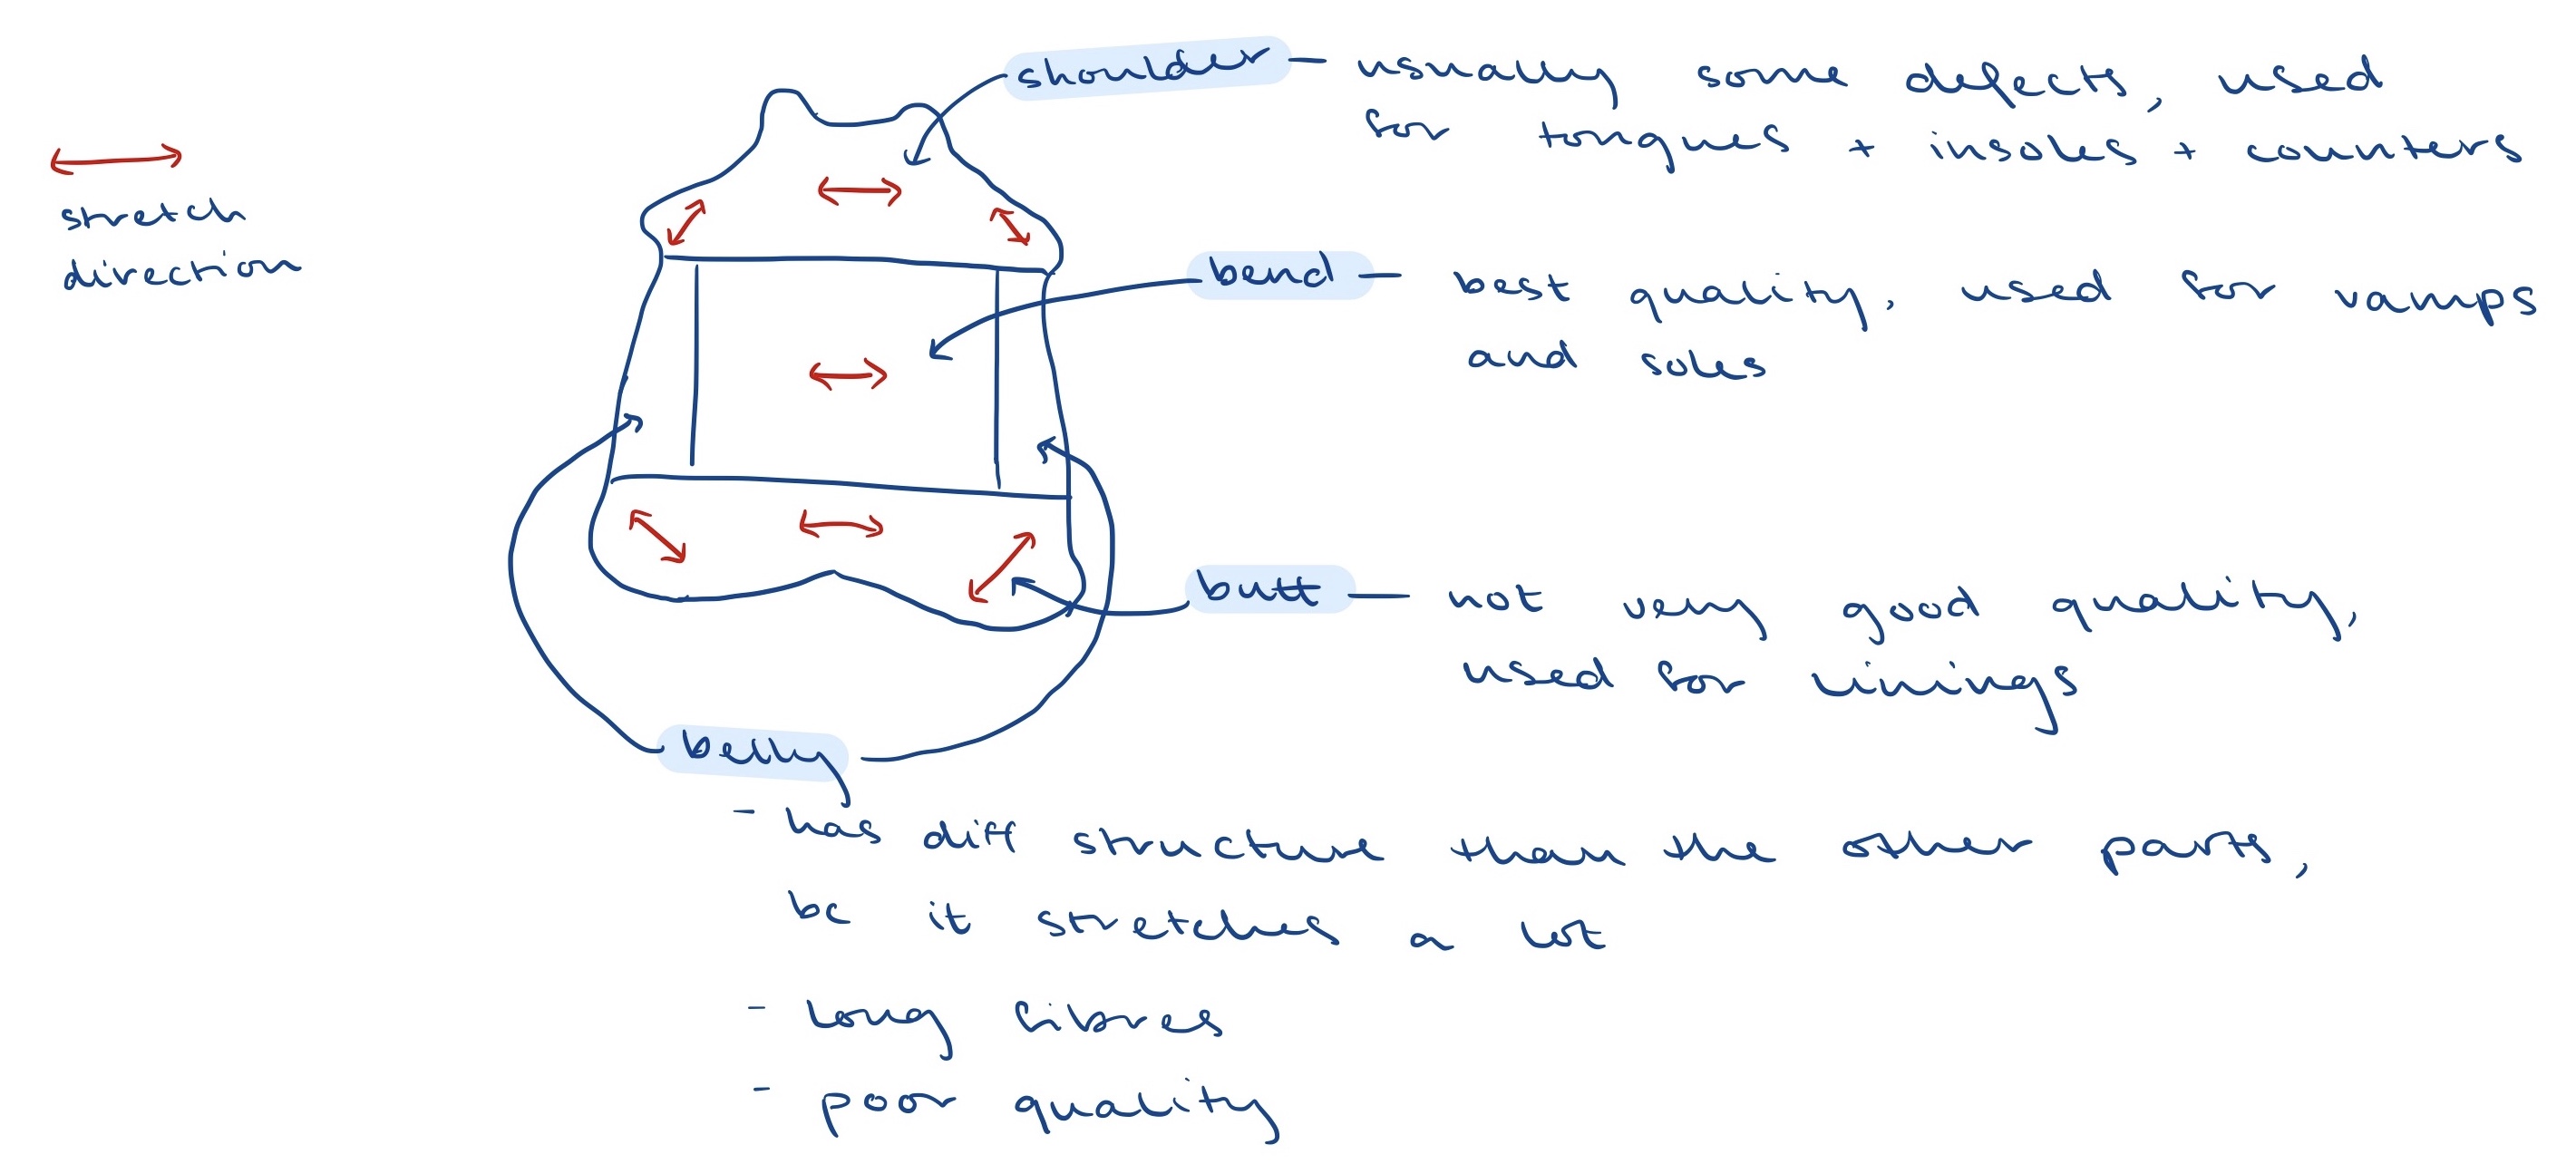 shoulder - usually some defects, used
for tongues + insoles + counters
stretch
direction
bend - best quality, used for vamps
and soles
butt - not very good quality,
used for linings
belly
- has diff structure than the other parts,
bc it stretches a lot
- long fibres
- poor quality